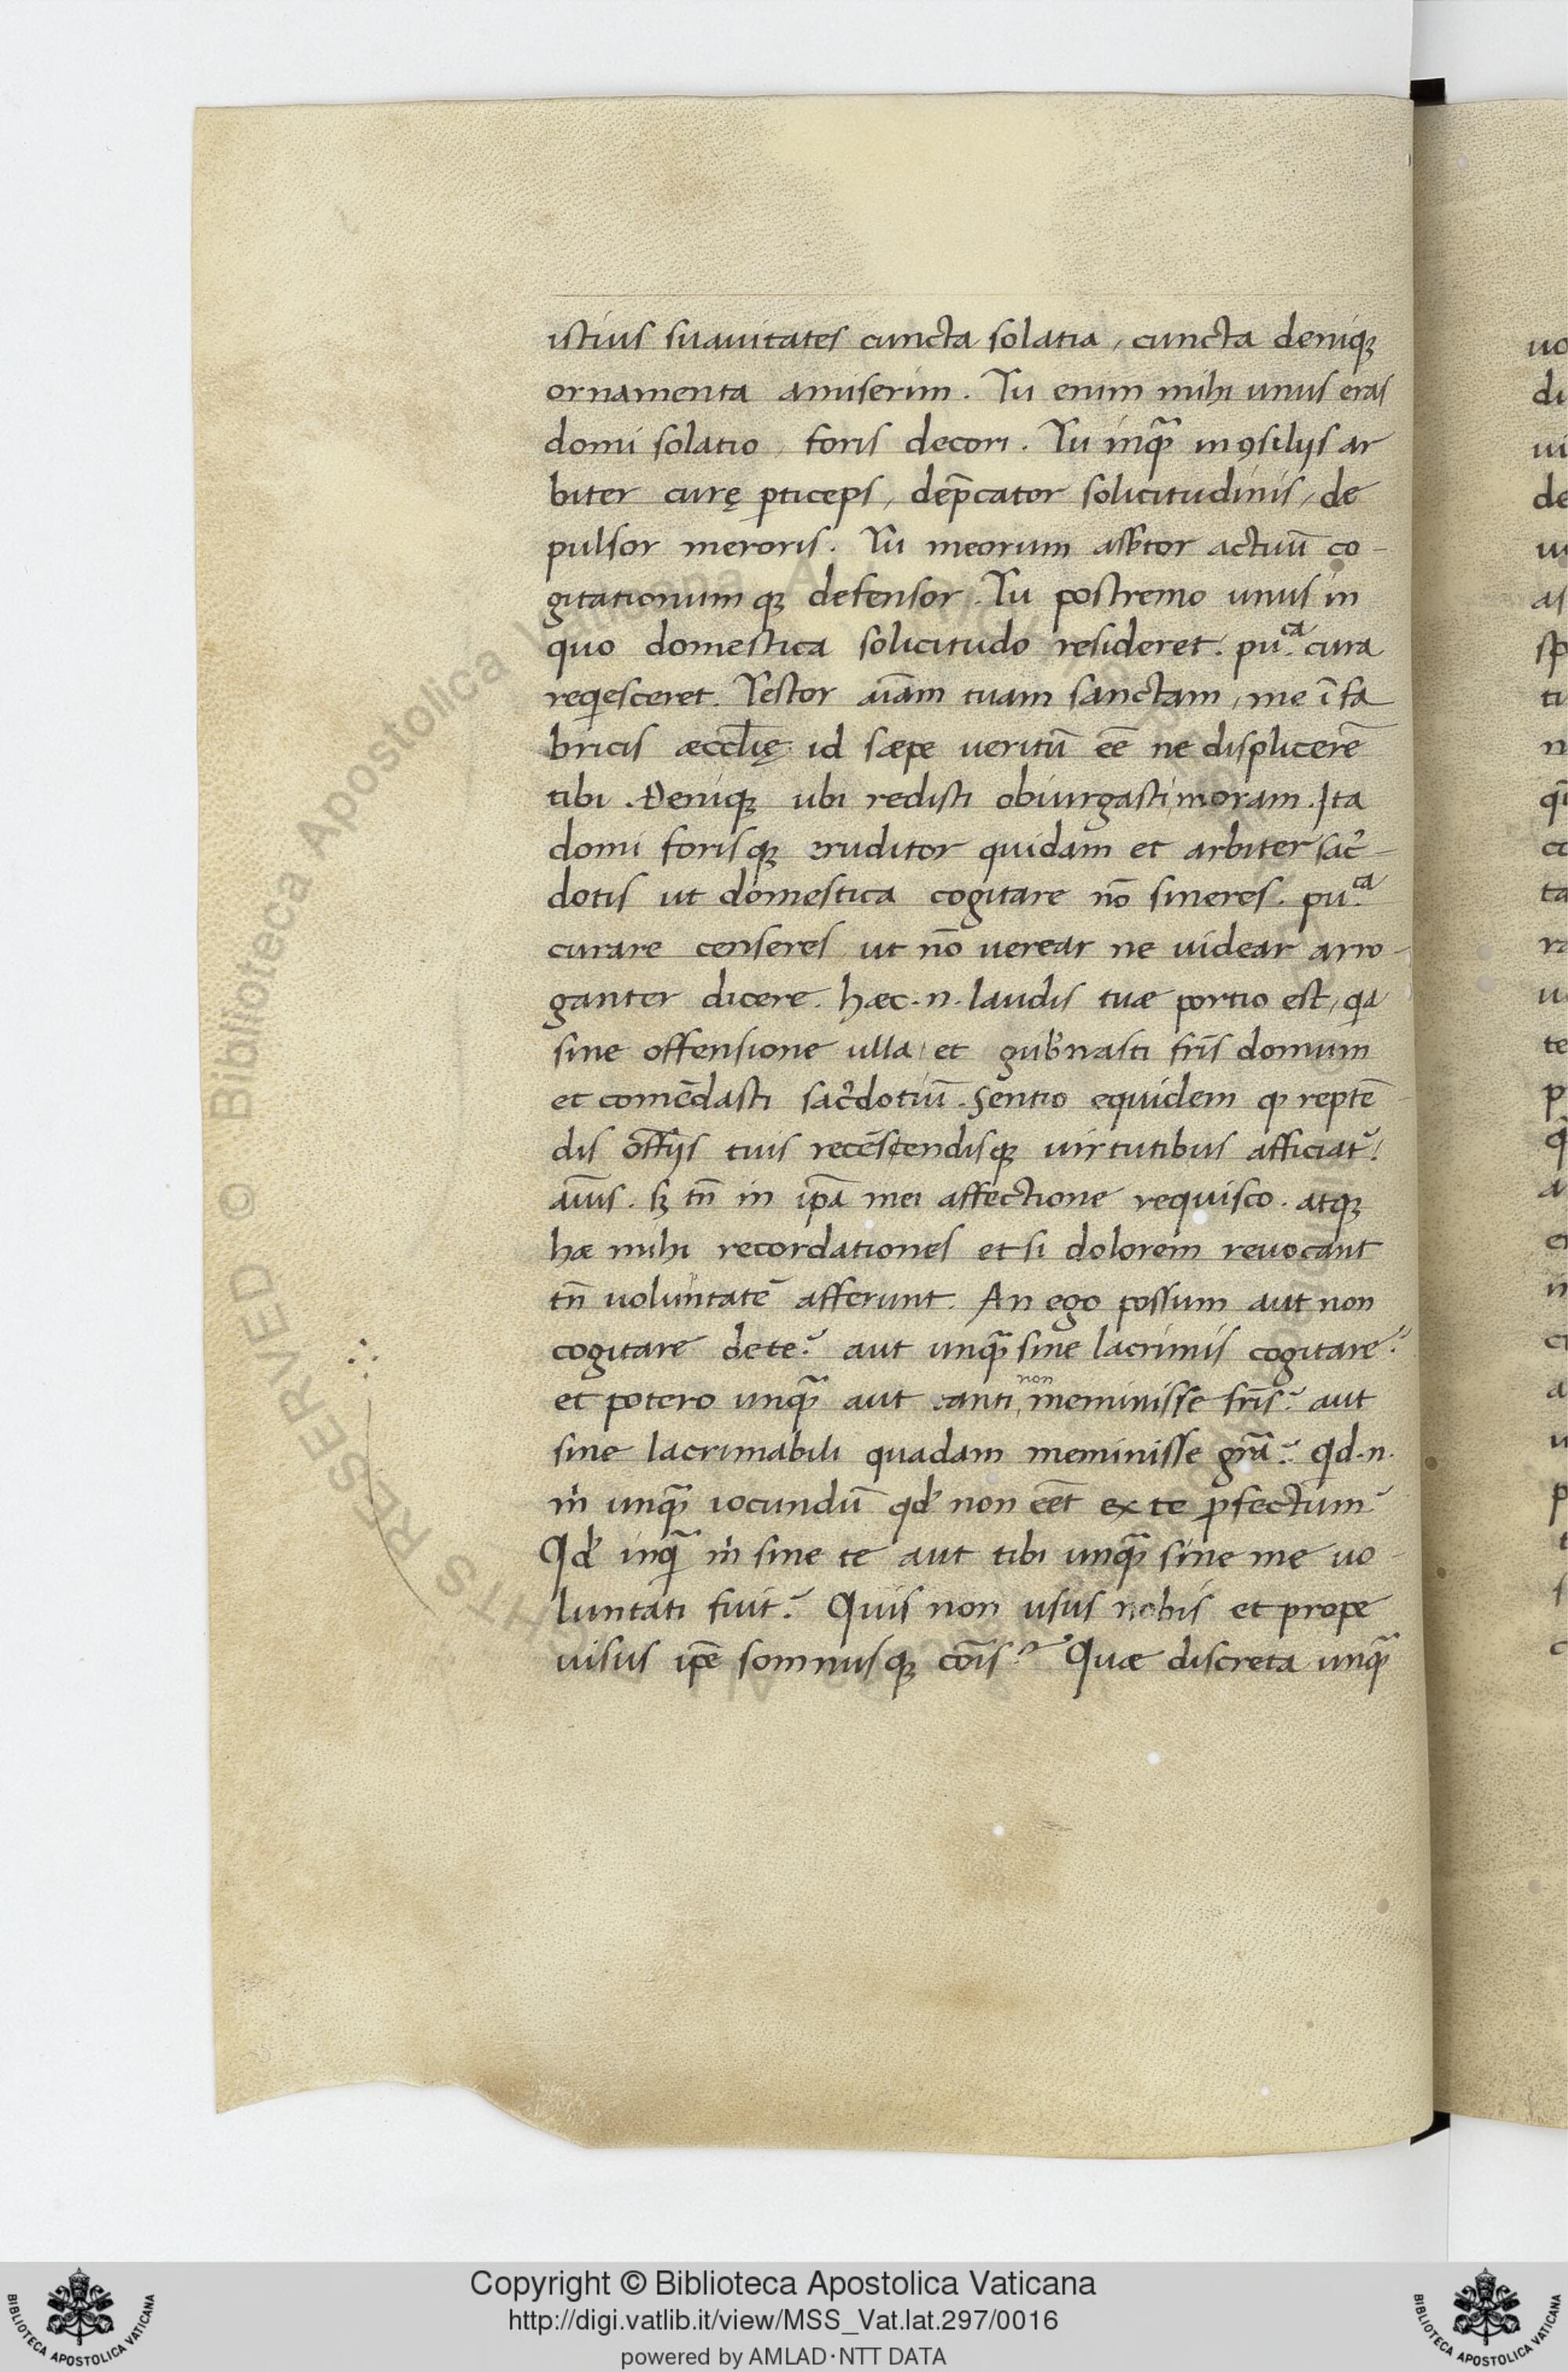 istius suauitates cuncta solatia, cuncta deniqꝫ
ornamenta amiserim. Tu enim mihi unus eras
domi solatio, foris decori. Tu inqꝫ̃ in ꝯsilijs ar
biter curę ꝑticeps, dep̄cator solicitudinis, de
pulsor meroris. Tu meorum assertor actuū co-
gitationumqꝫ defensor. Tu postremo unus in
quo domestica solicitudo resideret. pu.ᶜᵃ cura
reqͥesceret. Testor aīam tuam sanctam, me ī fa
bricis æccl̄ię id sæpe ueritū eē ne displicerē
tibi. Deniqꝫ ubi redisti obiurgasti moram. Ita
domi forisqꝫ eruditor quidam et arbiter sac̄-
dotis ut domestica cogitare nō sineres. pu.ᶜᵃ
curare censeres ut nō uerear ne uidear arro-
ganter dicere. hæc .n. laudis tuæ portio est, qͥa
sine offensione ulla et gub̄nasti fr̄is domum
et comēdasti sac̄dotiū. Sentio equidem ꝙ reptē
dis off̄ijs tuis recēsendisqꝫ uirtutibus afficiat᷑
aīus. sꝫ tn̄ in ip̄a mei affectione requisco. atqꝫ
hæ mihi recordationes et si dolorem reuocant
tn̄ uoluntatē afferunt. An ego possum aut non
cogitare de te? aut unqꝫ̃ sine lacrimis cogitare?
et potero unqꝫ̃ aut tanti non meminisse fr̄is? aut
sine lacrimabili quadam meminisse grā? Qd .n.
m̊ unqꝫ̃ iocundū qd̓ non eēt ex te ꝓfectum?
Qd̓ inqͣ m̊ sine te aut tibi unqꝫ̃ sine me uo-
luntati fuit? Quis non usus nobis et prope
uisus ip̄e somnusqꝫ cōis? Quæ discreta unqꝫ̃
uo
di
ui
de
Copyright © Biblioteca Apostolica Vaticana
http://digi.vatlib.it/view/MSS_Vat.lat.297/0016
powered by AMLAD·NTT DATA
BIBLIOTECA APOSTOLICA VATICANA
BIBLIOTECA APOSTOLICA VATICANA